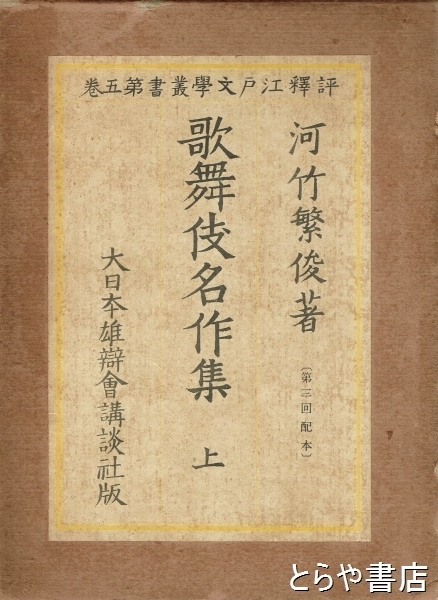 評釋江戸文學叢書第五卷
河竹繁俊著
(第三回配本)
歌舞伎名作集 上
大日本雄辯會講談社版
とらや書店